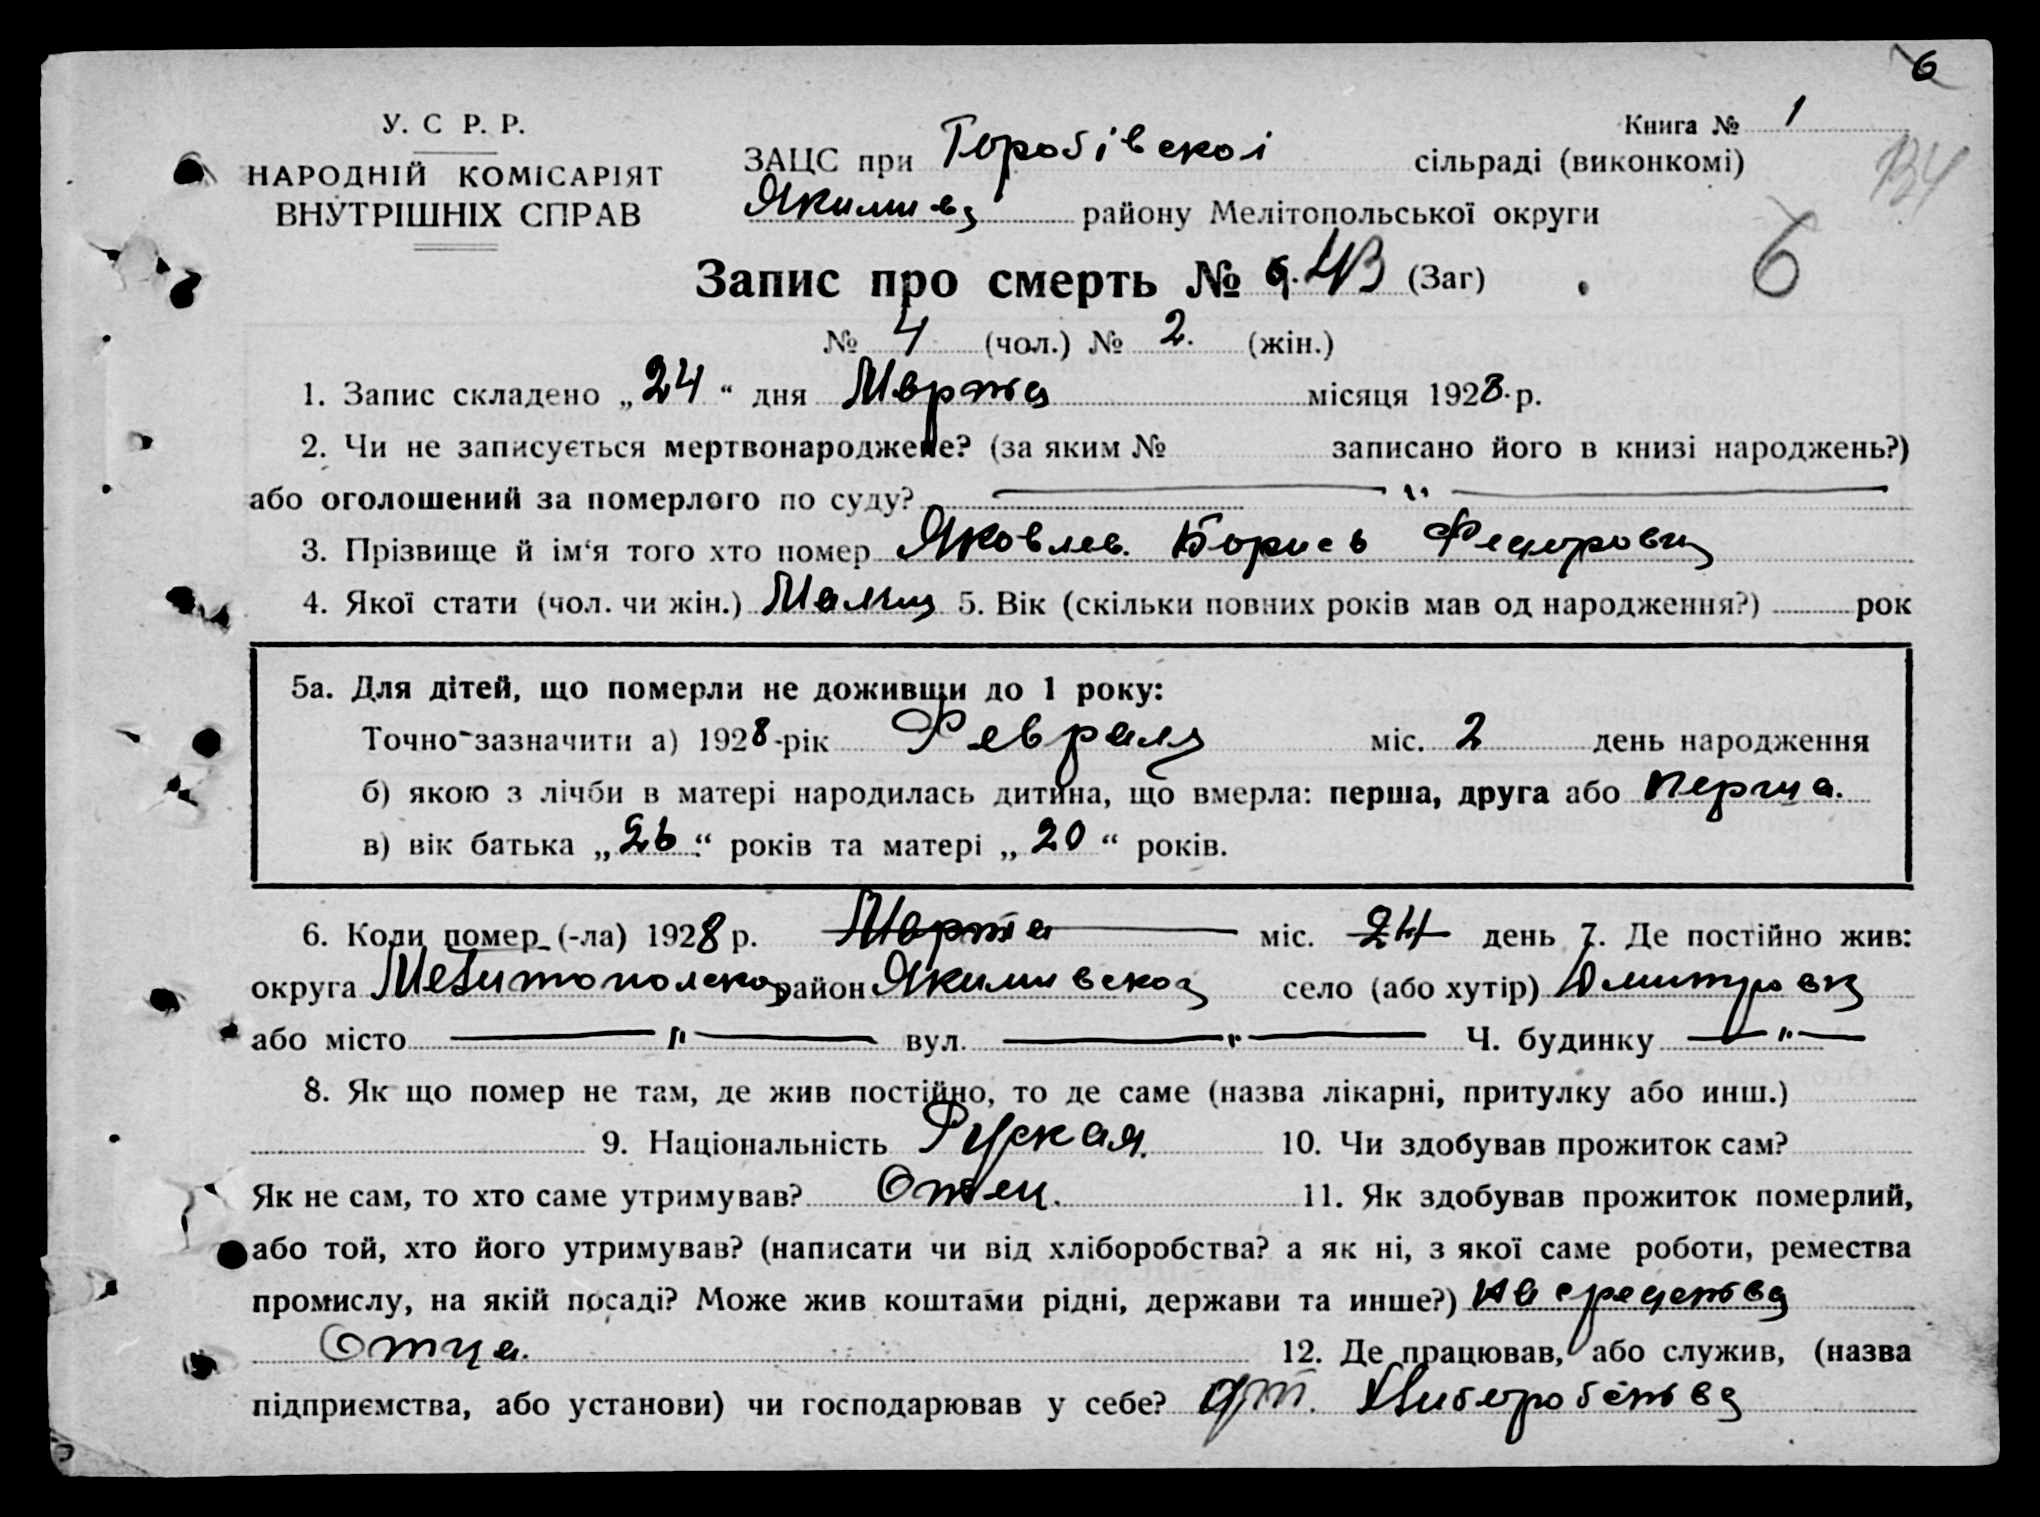 6
У. С. Р. Р.
Книга № 1
НАРОДНІЙ КОМІСАРІЯТ
ВНУТРІШНІХ СПРАВ
ЗАЦС при Горобівскоі сільраді (виконкомі)
району Мелітопольської округи
6
Запис про смерть № (Заг)
№ 4 (чол.) № 2. (жін.)
1. Запис складено „24“ дня Марта місяця 1928 р.
2. Чи не записується мертвонароджене? (за яким № записано його в книзі народжень?)
або оголошений за померлого по суду? — " —
3. Прізвище й ім‘я того хто помер Яковлев. Борись Федорович
4. Якої стати (чол. чи жін.) 5. Вік (скільки повних років мав од народження?) рок
5а. Для дітей, що померли не доживши до 1 року:
Точно-зазначити а) 1928-рік Февраля міс. 2 день народження
б) якою з лічби в матері народилась дитина, що вмерла: перша, друга або перша.
в) вік батька „26“ років та матері „20“ років.
6. Коли помер (-ла) 1928 р. Марта міс. 24 день 7. Де постійно жив:
округа район село (або хутір)
або місто — " — вул. — " — Ч. будинку — " —
8. Як що помер не там, де жив постійно, то де саме (назва лікарні, притулку або инш.)
9. Національність Руская. 10. Чи здобував прожиток сам?
Як не сам, то хто саме утримував? Отец. 11. Як здобував прожиток померлий,
або той, хто його утримував? (написати чи від хліборобства? а як ні, з якої саме роботи, ремества
промислу, на якій посаді? Може жив коштами рідні, держави та инше?) на средства
Отца.
12. Де працював, або служив, (назва
підприємства, або установи) чи господарював у себе? Хліборобства